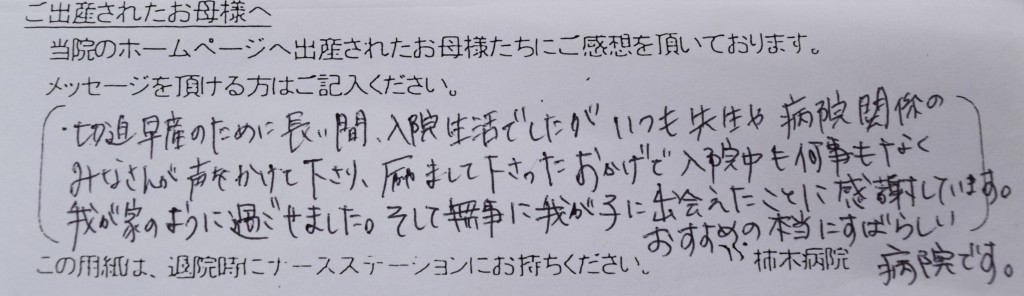 ご出産されたお母様へ
当院のホームページへ出産されたお母様たちにご感想を頂いております。
メッセージを頂ける方はご記入ください。
・切迫早産のために長い間、入院生活でしたがいつも先生や病院関係の
みなさんが声をかけて下さり、励まして下さったおかげで入院中も何事もなく
我が家のように過ごせました。そして無事に我が子に出会えたことに感謝しています。
おすすめの本当にすばらしい
病院です。
この用紙は、退院時にナースステーションにお持ちください。
柿木病院